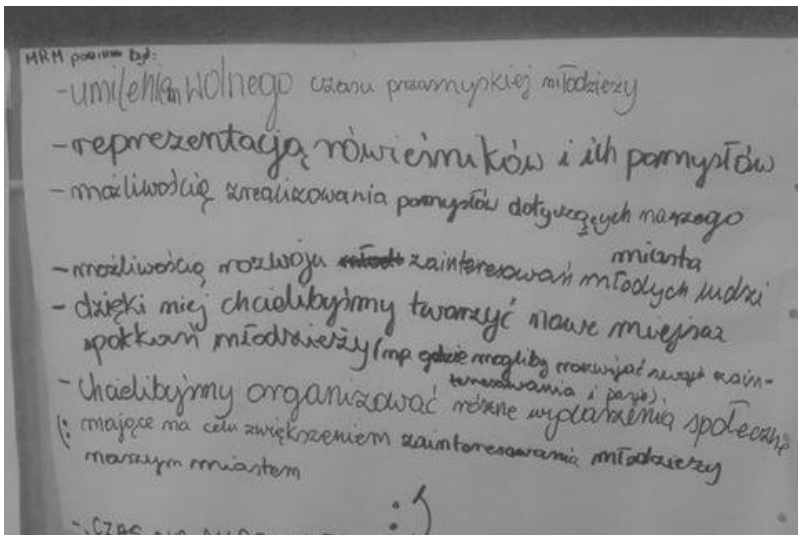 MRM powinno być:
- umileniem wolnego czasu przemyskiej młodzieży
- reprezentacją rówieśników i ich pomysłów
- możliwością zrealizowania pomysłów dotyczących naszego
miasta
- możliwością rozwoju zainteresowań młodych ludzi
- dzięki niej chcielibyśmy tworzyć nowe miejsca
spotkań młodzieży (np gdzie mogliby rozwijać swoje zain-
teresowania i pasje).
- Chcielibyśmy organizować różne wydarzenia społeczne
(: mające na celu zwiększeniem zainteresowania młodzieży
naszym miastem
:)
- CZAS NA